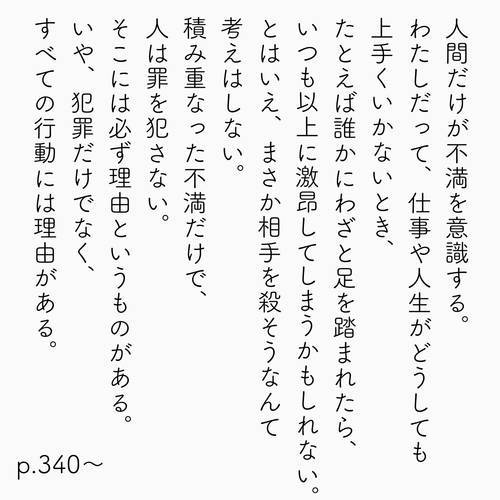 人間だけが不満を意識する。
わたしだって、仕事や人生がどうしても
上手くいかないとき、
たとえば誰かにわざと足を踏まれたら、
いつも以上に激昂してしまうかもしれない。
とはいえ、まさか相手を殺そうなんて
考えはしない。
積み重なった不満だけで、
人は罪を犯さない。
そこには必ず理由というものがある。
いや、犯罪だけでなく、
すべての行動には理由がある。
p.340〜